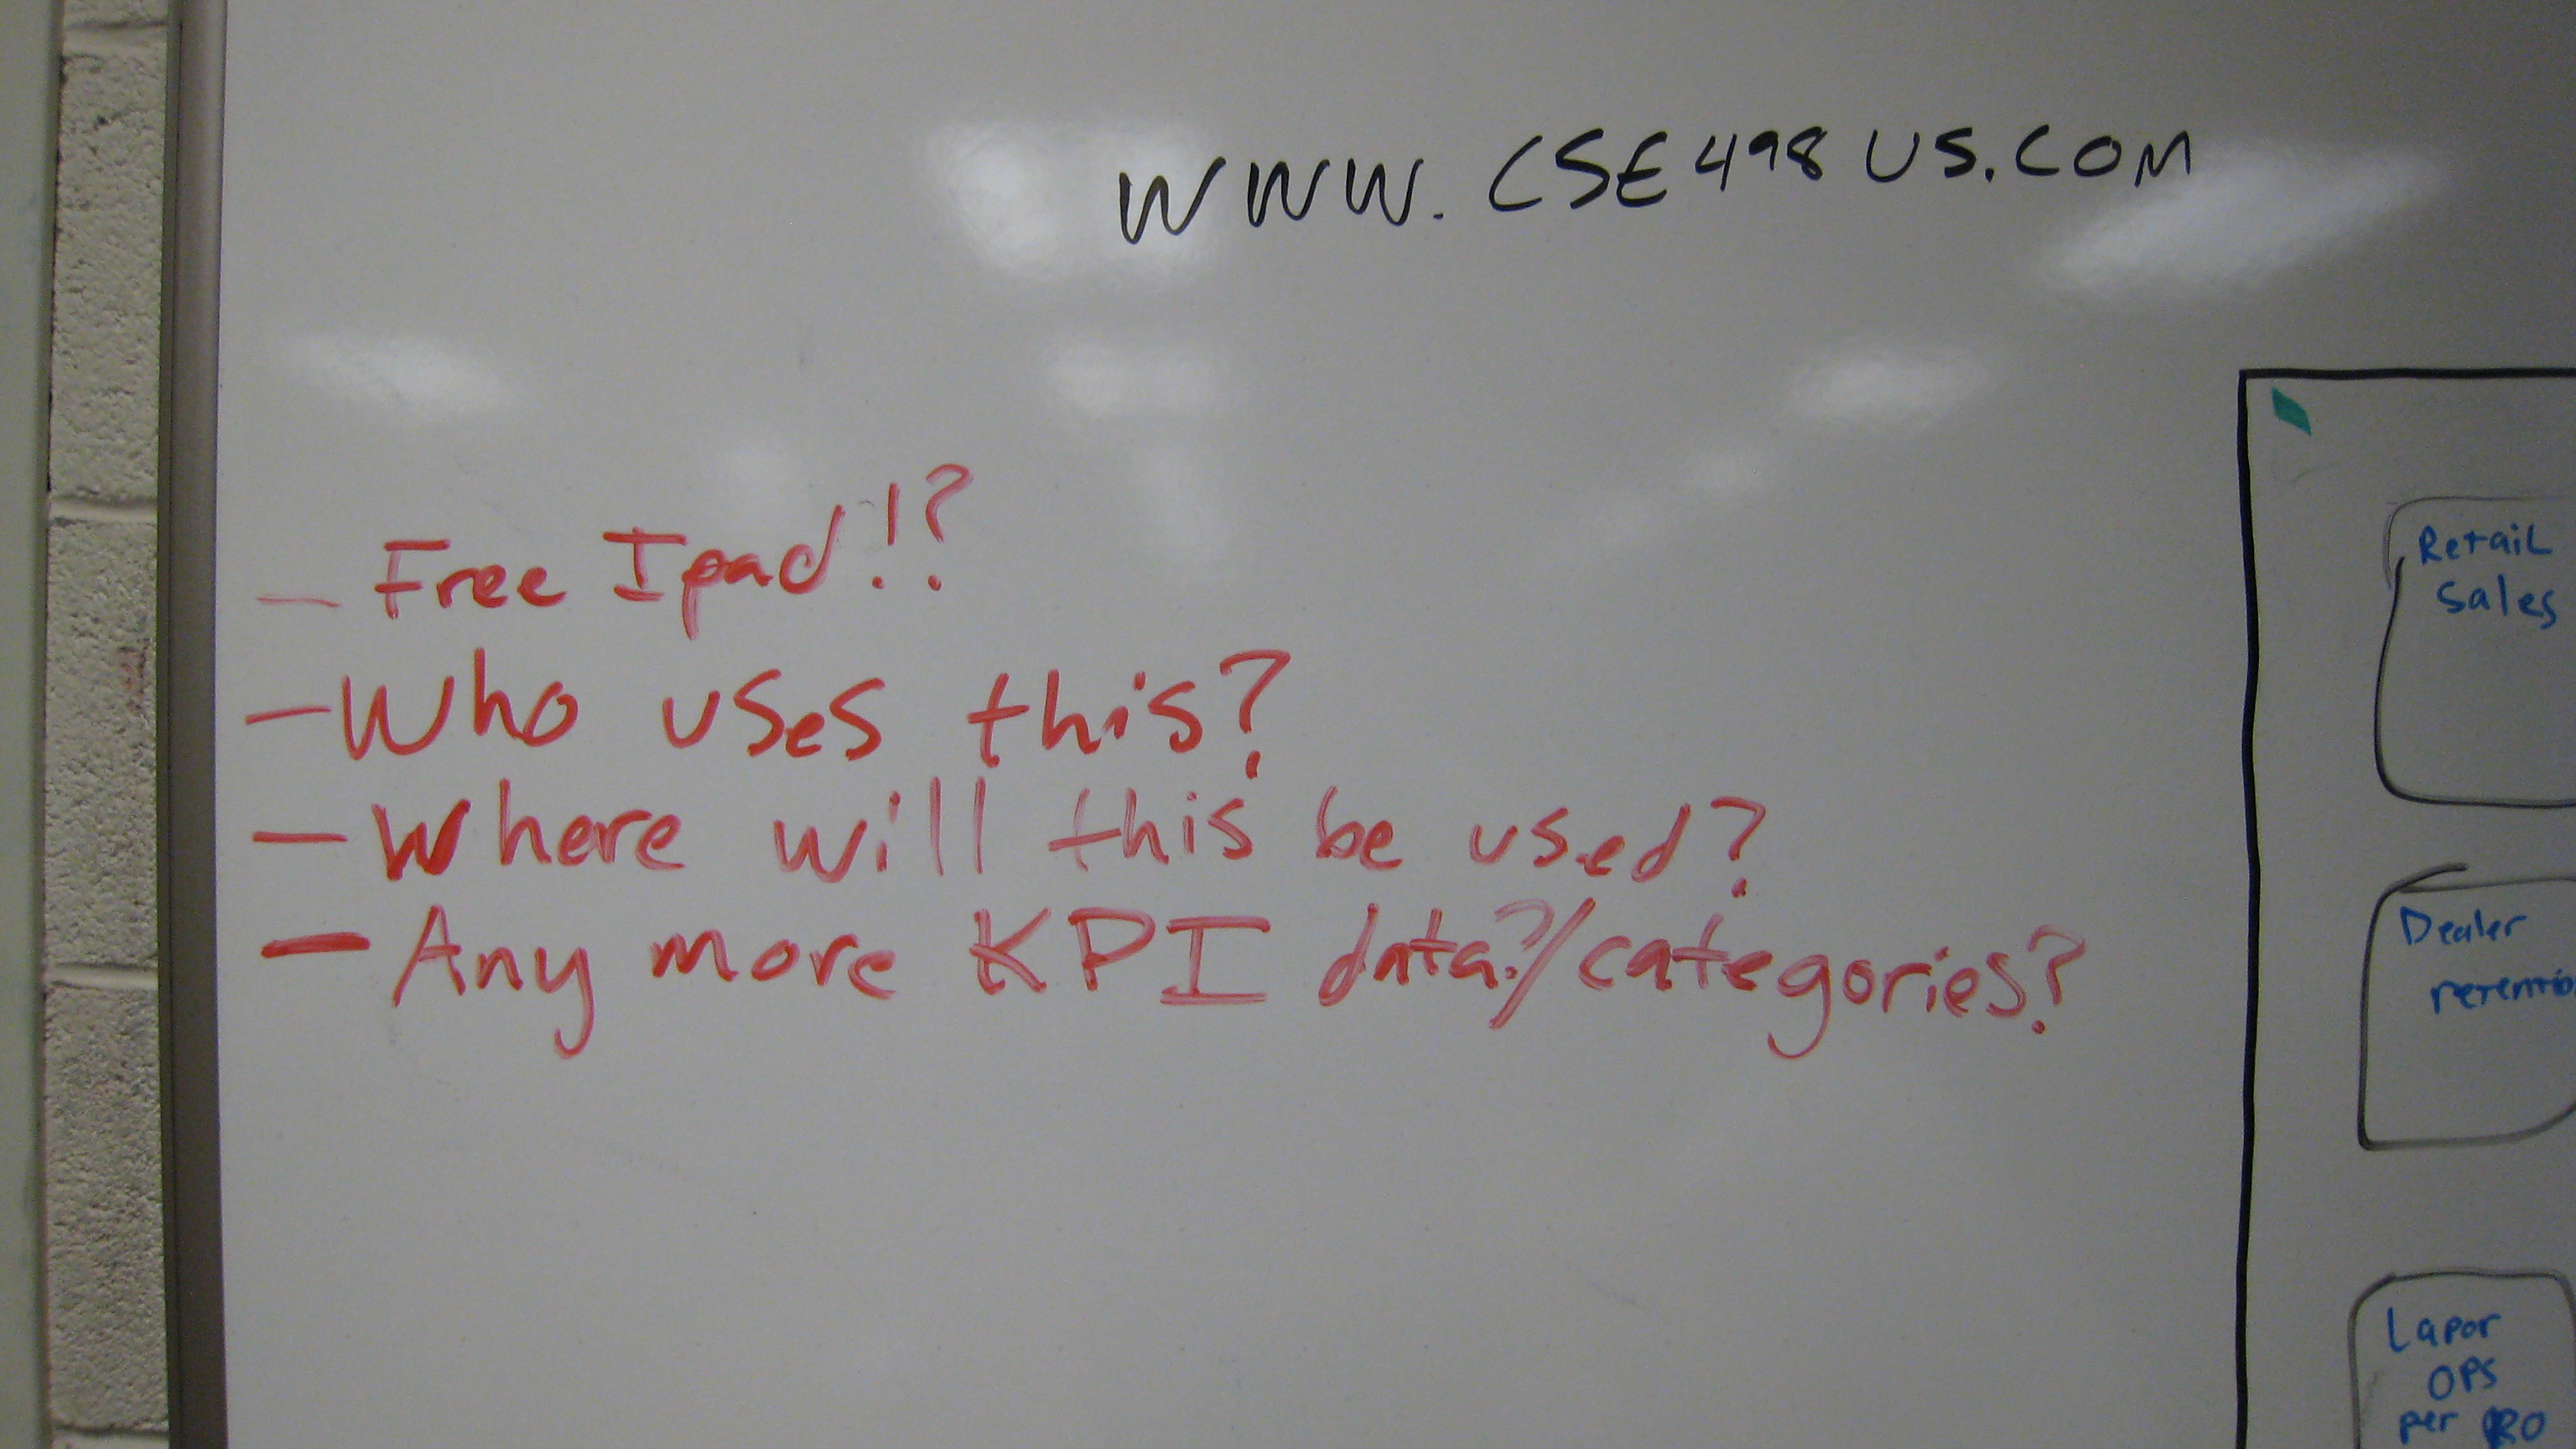 WWW.CSE498US.COM
- Free Ipad!?
- Who uses this?
- Where will this be used?
- Any more KPI data?/categories?
Retail
Sales
Dealer
Lapor
OPS
per RO